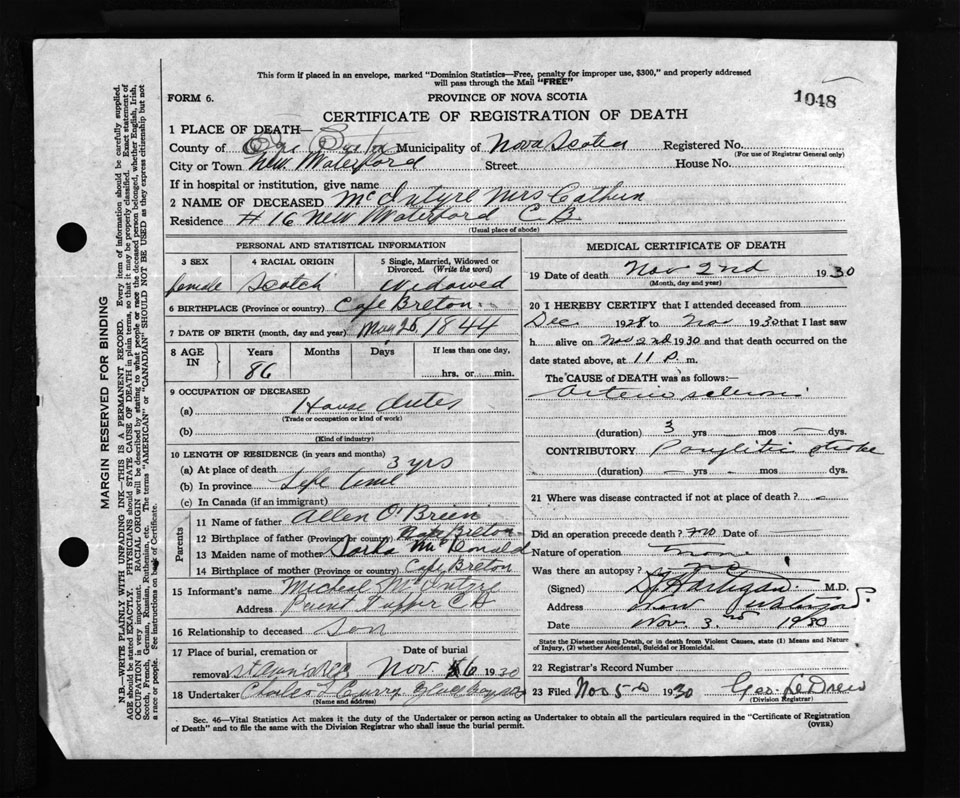 This form if placed in an envelope, marked "Dominion Statistics—Free, penalty for improper use, $300," and properly addressed
will pass through the Mail "FREE"
1048
FORM 6.
PROVINCE OF NOVA SCOTIA
CERTIFICATE OF REGISTRATION OF DEATH
1 PLACE OF DEATH—
County of Municipality of Nova Scotia Registered No.
(For use of Registrar General only)
City or Town New Waterford Street House No.
If in hospital or institution, give name
2 NAME OF DECEASED McIntyre Mrs
Residence # 16 New Waterford C B
(Usual place of abode)
PERSONAL AND STATISTICAL INFORMATION
3 SEX 4 RACIAL ORIGIN 5 Single, Married, Widowed or
Divorced. (Write the word)
female Scotch Widowed
6 BIRTHPLACE (Province or country) Cape Breton
7 DATE OF BIRTH (month, day and year) May 25 1844
8 AGE IN Years Months Days If less than one day,
86 hrs. or min.
9 OCCUPATION OF DECEASED
(a) House duties
(Trade or occupation or kind of work)
(b)
(Kind of industry)
10 LENGTH OF RESIDENCE (in years and months)
(a) At place of death 3 yrs
(b) In province Life time
(c) In Canada (if an immigrant)
Parents
11 Name of father Allen O'Brien
12 Birthplace of father (Province or country) Cape Breton
13 Maiden name of mother McDonald
14 Birthplace of mother (Province or country) Cape Breton
15 Informant's name Michael McIntyre
Address Point Tupper C B
16 Relationship to deceased Son
17 Place of burial, cremation or Date of burial
removal Nov 6 1930
18 Undertaker Charles Curry Glace Bay
(Name and address)
MEDICAL CERTIFICATE OF DEATH
19 Date of death Nov 2nd 1930
(Month, day and year)
20 I HEREBY CERTIFY that I attended deceased from
Dec 1928 to Nov 1930 that I last saw
h alive on Nov 2nd 1930 and that death occurred on the
date stated above, at 11 P. m.
The CAUSE of DEATH was as follows:—
Arterio sclerosis
(duration) 3 yrs — mos — dys.
CONTRIBUTORY stroke
(duration) — yrs. — mos — dys.
21 Where was disease contracted if not at place of death?
Did an operation precede death? no Date of
Nature of operation none
Was there an autopsy? no
(Signed) Hartigan M.D.
Address New Waterford
Date Nov. 3rd 1930
State the Disease causing Death, or in death from Violent Causes, state (1) Means and Nature
of Injury, (2) whether Accidental, Suicidal or Homicidal.
22 Registrar's Record Number
23 Filed Nov 5th 1930 Geo. LeDrew
(Division Registrar)
Sec. 46—Vital Statistics Act makes it the duty of the Undertaker or person acting as Undertaker to obtain all the particulars required in the "Certificate of Registration
of Death" and to file the same with the Division Registrar who shall issue the burial permit.
(OVER)
MARGIN RESERVED FOR BINDING
N.B.—WRITE PLAINLY WITH UNFADING INK—THIS IS A PERMANENT RECORD. Every item of information should be carefully supplied.
AGE should be stated EXACTLY. PHYSICIANS should STATE CAUSE OF DEATH in plain terms, so that it may be properly classified. Exact statement of
OCCUPATION is very important. RACIAL ORIGIN will be described by stating to what people or race the deceased person belonged, whether English, Irish,
Scotch, French, German, Russian, Ruthenian, etc. The terms "AMERICAN" or "CANADIAN" SHOULD NOT BE USED as they express citizenship but not
a race or people. See instructions on back of Certificate.